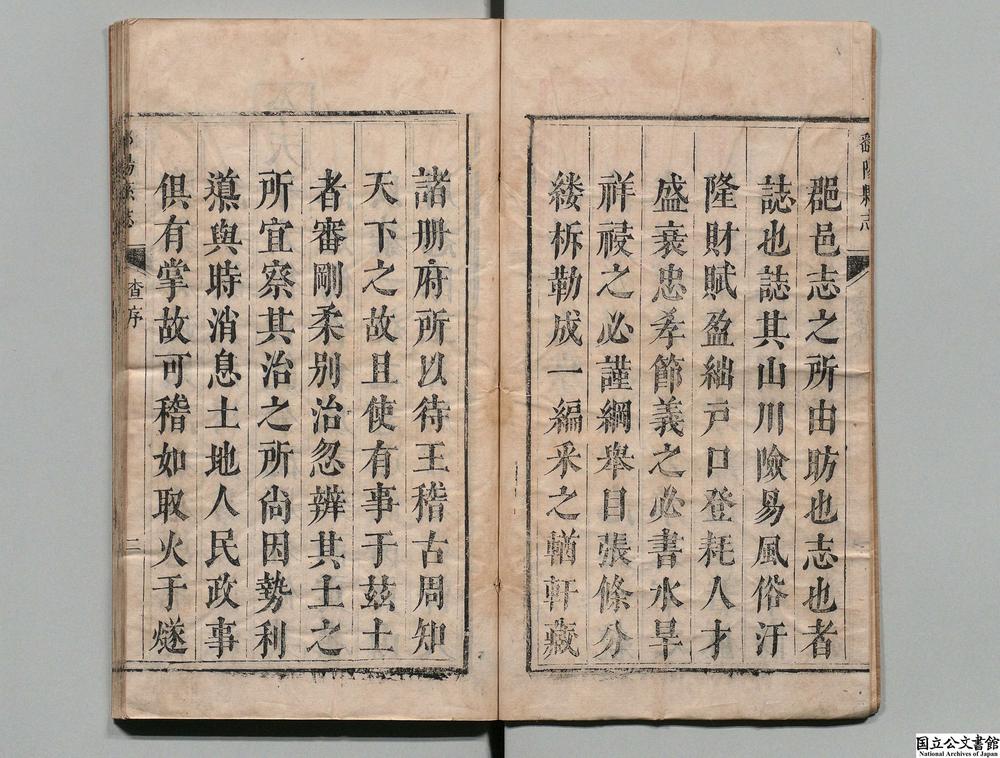 郡邑志之所由昉也志也者
誌也誌其山川險易風俗汙
隆財賦盈絀戸口登耗人才
盛衰忠孝節義之必書水旱
祥祲之必謹綱舉目張條分
縷柝勒成一編釆之輶軒藏
諸册府所以待王稽古周知
天下之故且使有事于玆土
者審剛柔別治忽辨其土之
所宜察其治之所尚因勢利
導與時消息土地人民政事
俱有掌故可稽如取火于燧
陽縣志
查序
二
国立公文書館
National Archives of Japan